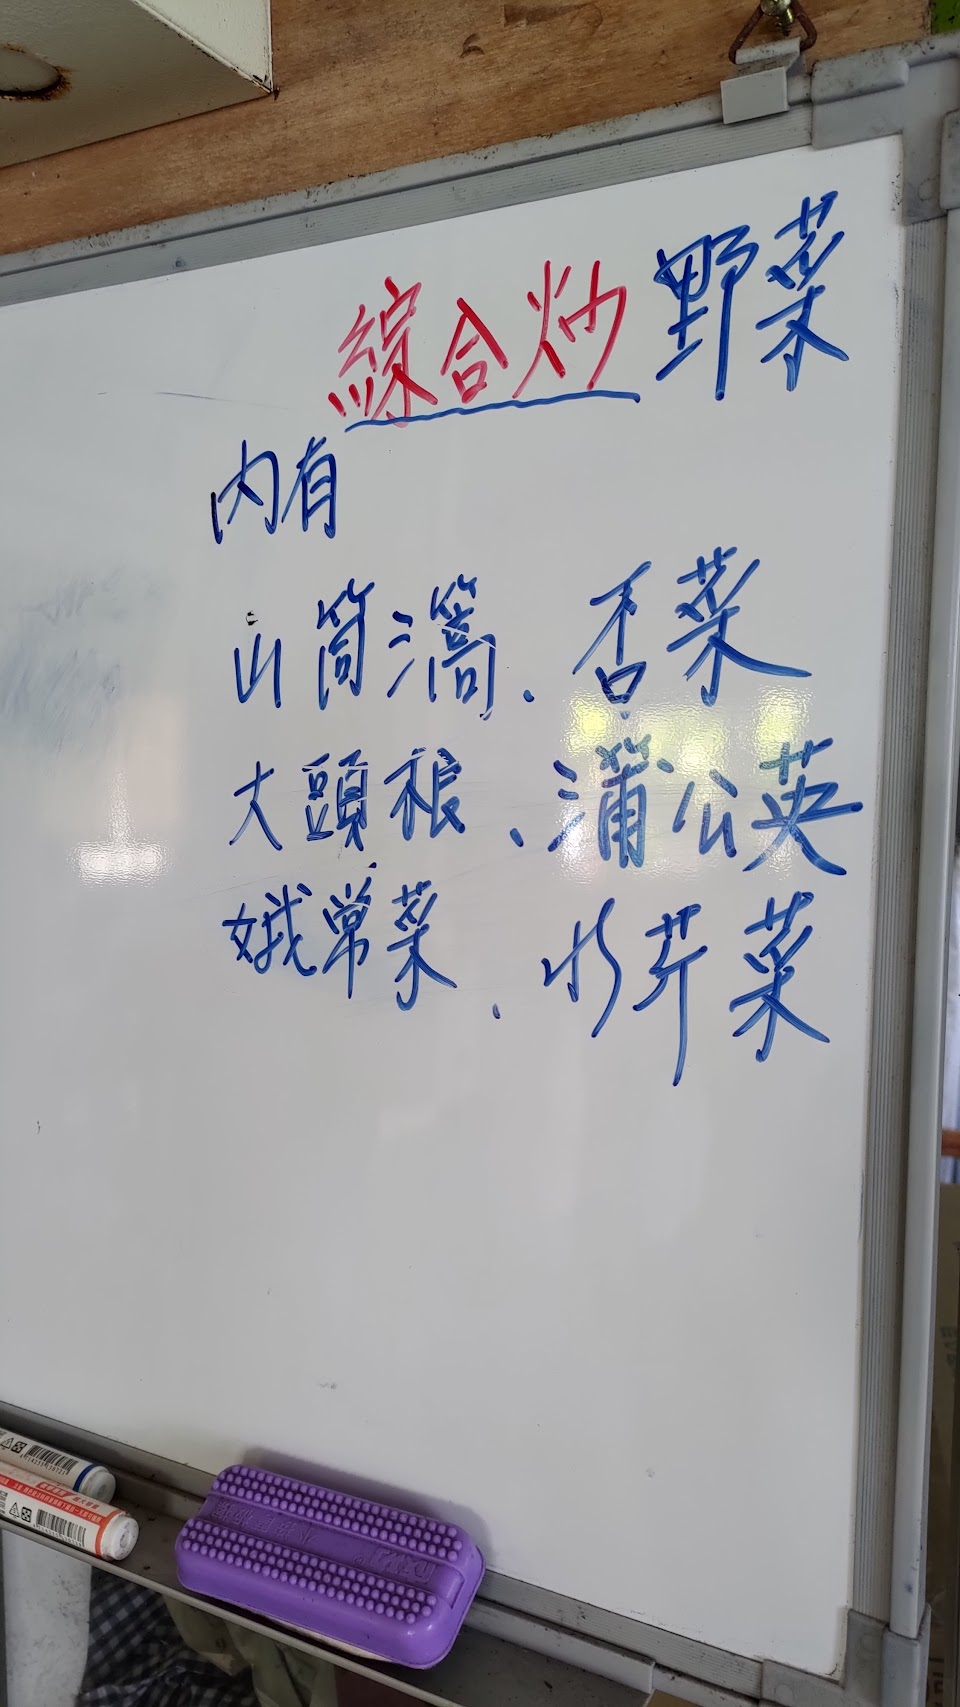 綜合炒野菜
內有
山筒滵、杏菜
大頭根、蒲公英
娥常菜、水芹菜